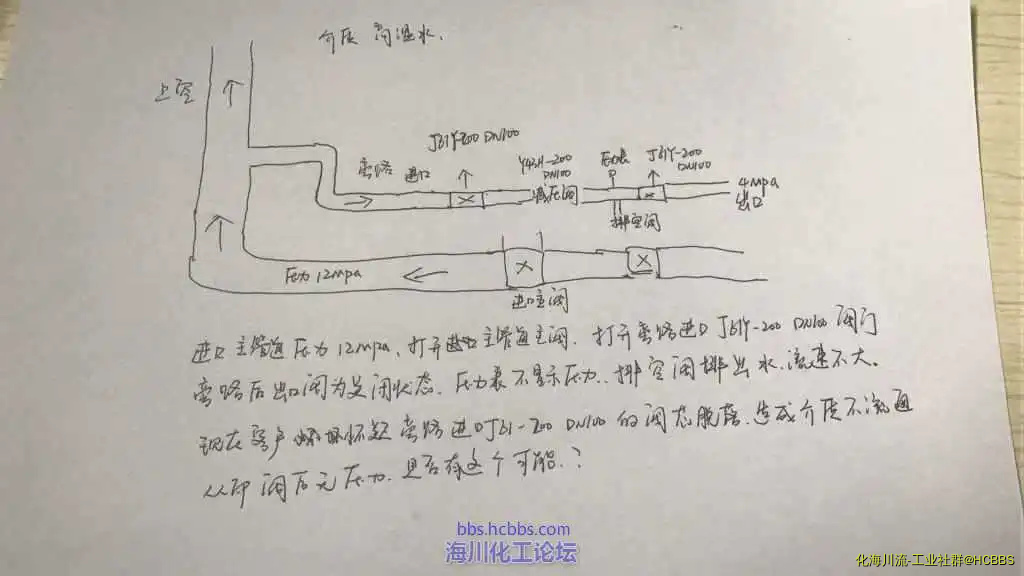 介质 高温水.
上空
J61Y-200 DN100
旁路 进口
Y43H-200
DN100
减压阀
压力表
J61Y-200
DN100
4Mpa
出口
排空阀
压力 12Mpa
进口主阀
进口主管道压力12Mpa、打开进口主管道主阀、打开旁路进口J61Y-200 DN100阀门
旁路后出口阀为关闭状态.压力表不显示压力..排空阀排出水.流速不大。
现在客户 怀疑旁路进口J61-200 DN100的阀芯脱落.造成介质不流通
从而阀后无压力.是否有这个可能.?
bbs.hcbbs.com
海川化工论坛
化海川流-工业社群@HCBBS